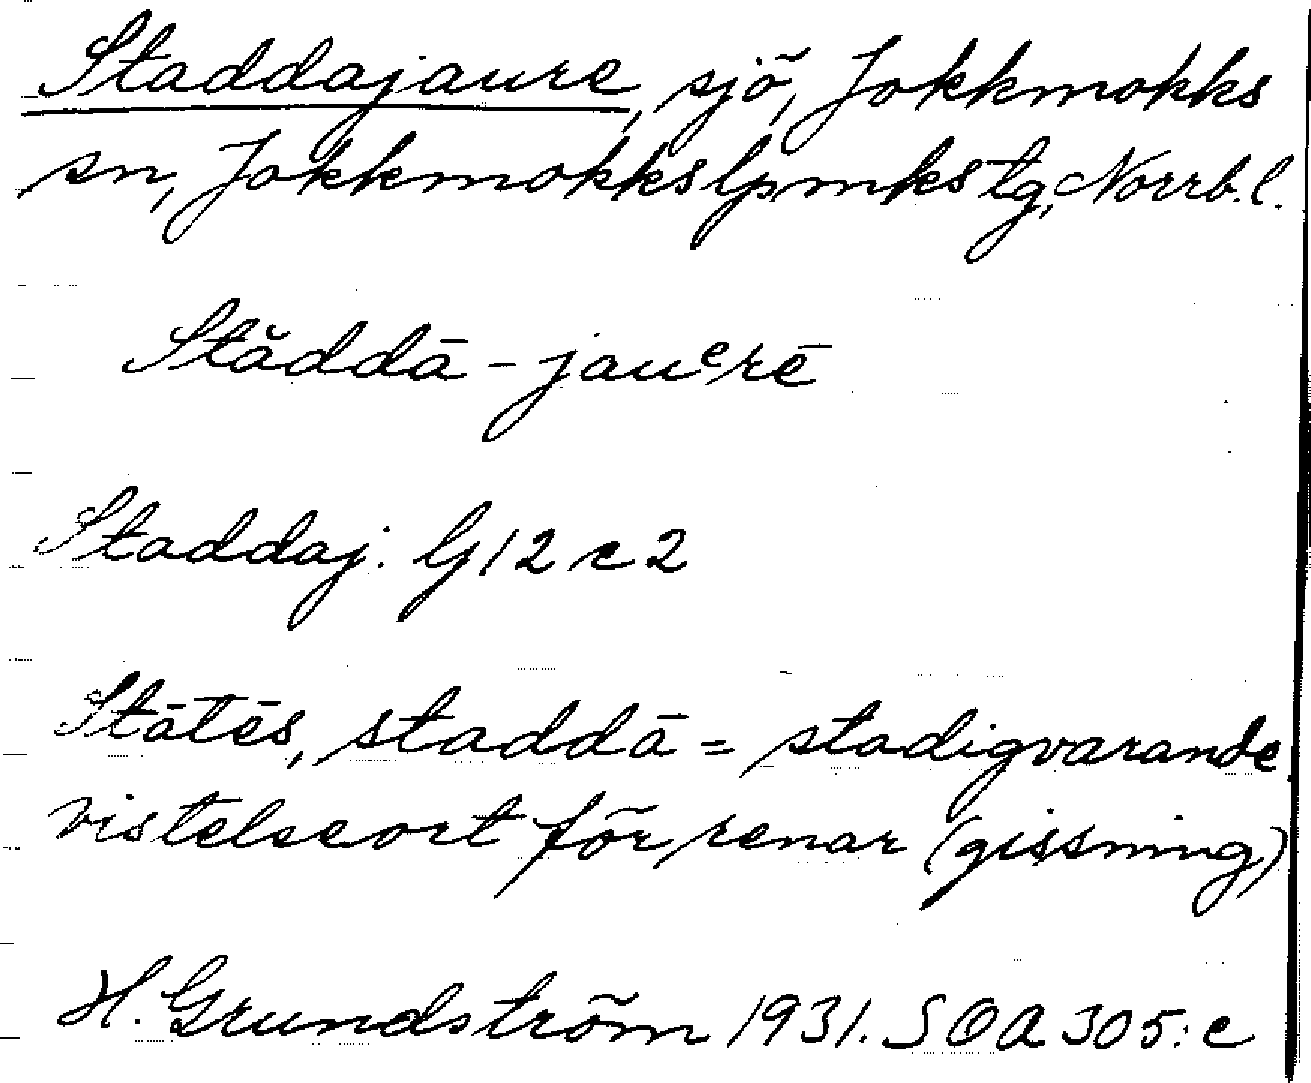 Staddajaure, sjö, Jokkmokks
sn, Jokkmokks lpmkstg, Norrb. l.
Stăddā-jauᵉrē
Staddaj. G 12 c 2
Stātēs, staddā = stadigvarande
vistelseort för renar (gissning)
H. Grundström 1931. SOA 305:c